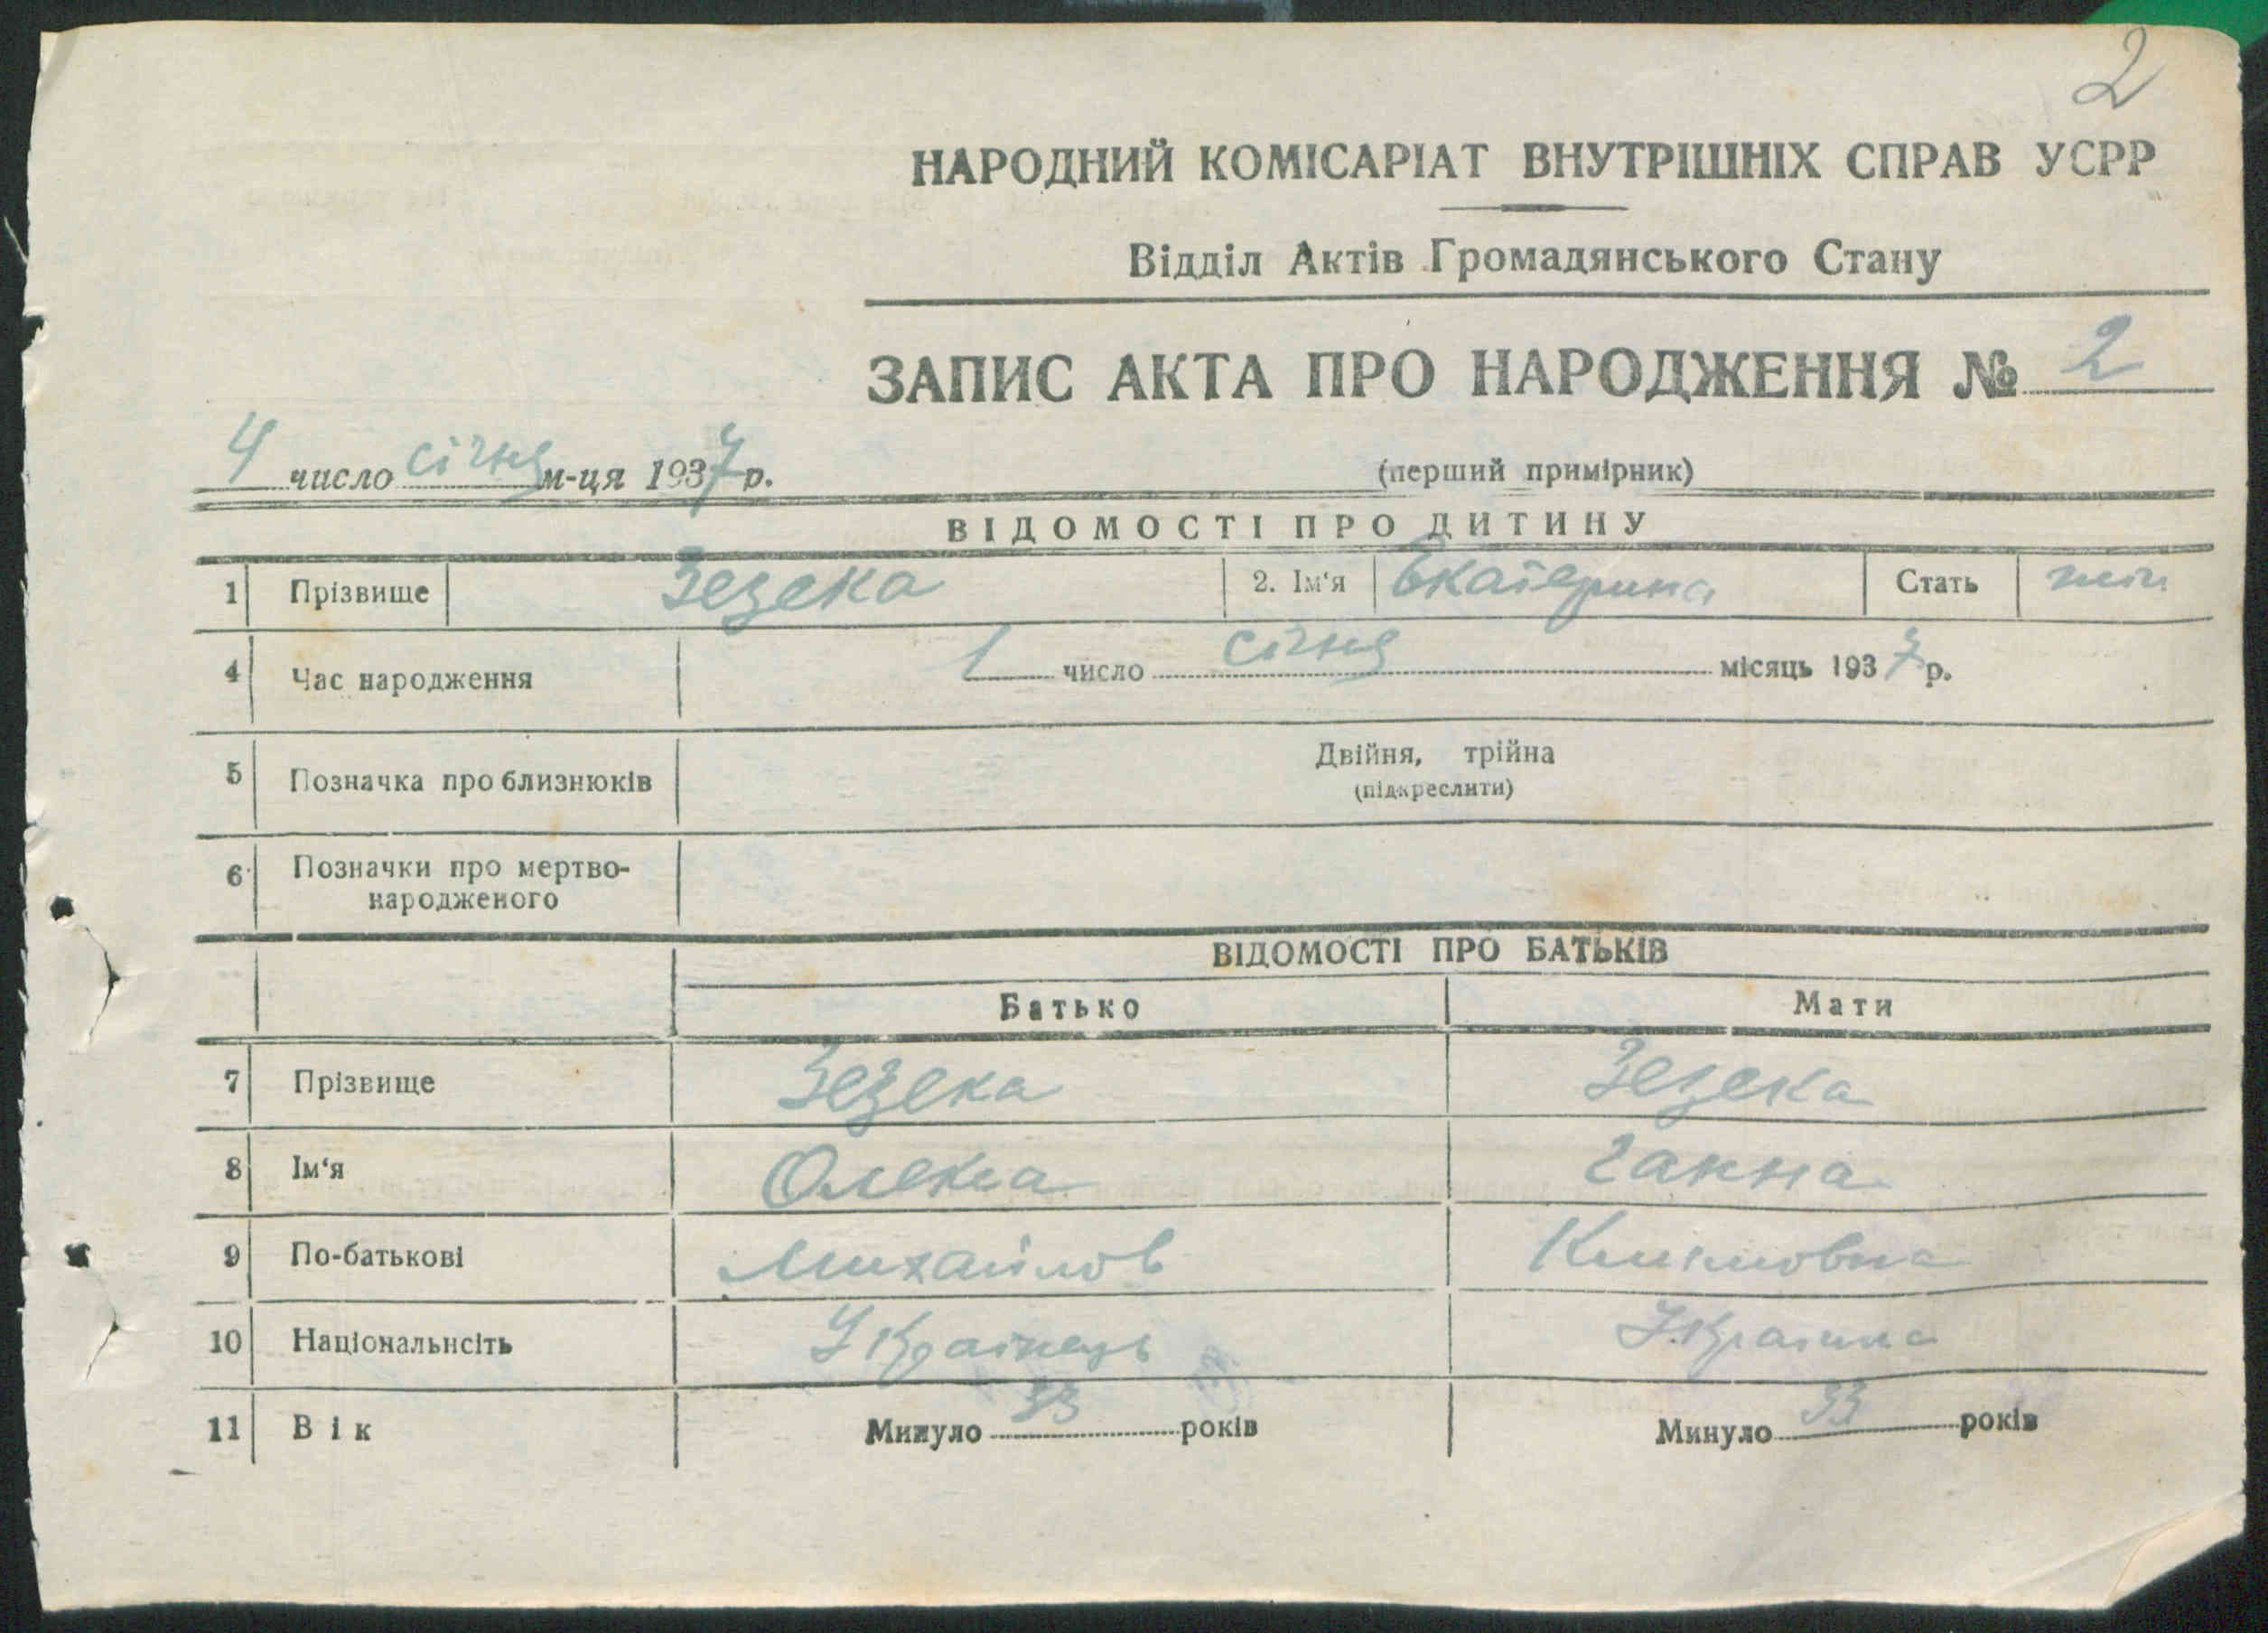 2
НАРОДНИЙ КОМІСАРІАТ ВНУТРІШНІХ СПРАВ УСРР
Відділ Актів Громадянського Стану
ЗАПИС АКТА ПРО НАРОДЖЕННЯ № 2
4 число січня м-ця 1937 р.
(перший примірник)
ВІДОМОСТІ ПРО ДИТИНУ
1 Прізвище Зезека 2. Ім'я Екатерина Стать жін
4 Час народження 1 число січня місяць 1937 р.
5 Позначка про близнюків Двійня, трійна
(підкреслити)
6 Позначки про мертво-
народженого
ВІДОМОСТІ ПРО БАТЬКІВ
Батько Мати
7 Прізвище Зезека Зезека
8 Ім'я Олекса Ганна
9 По-батькові Михайлов Климовна
10 Національнсіть Українець Українка
11 Вік Минуло 33 років Минуло 33 років